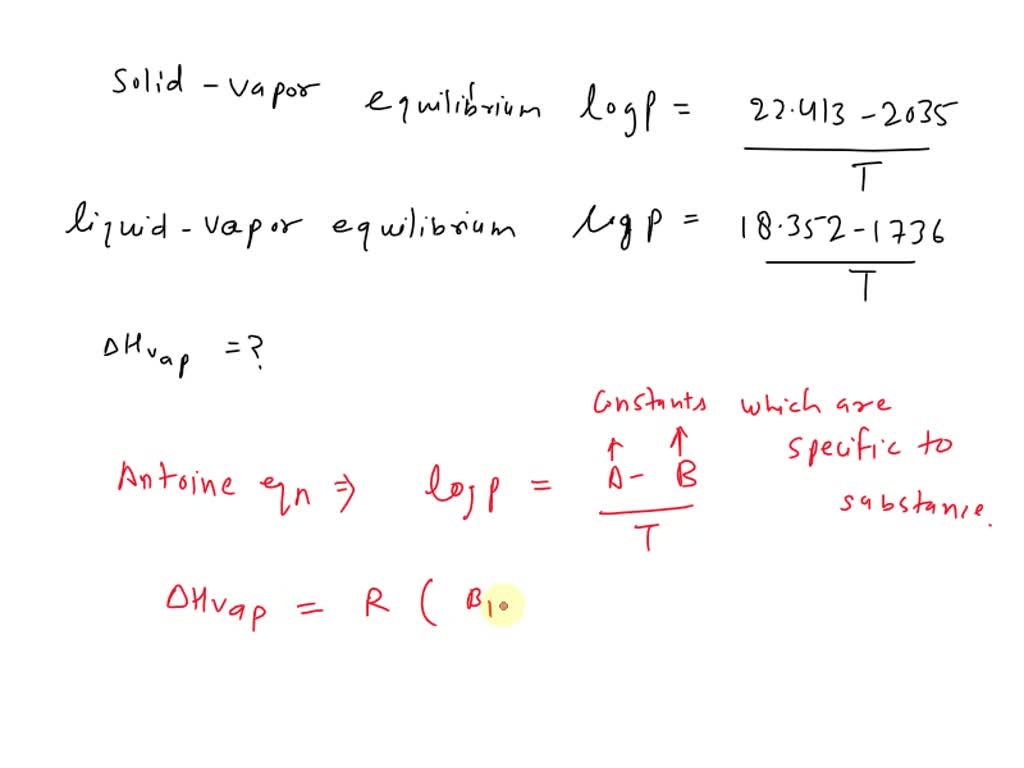 Solid - vapor equilibrium log P = 22.413 - 2035
T
liquid - vapor equilibrium log P = 18.352 - 1736
T
ΔHvap = ?
Constants which are
↑ ↑ specific to
Antoine eqn ⇒ log P = A - B
substance.
T
ΔHvap = R ( B1